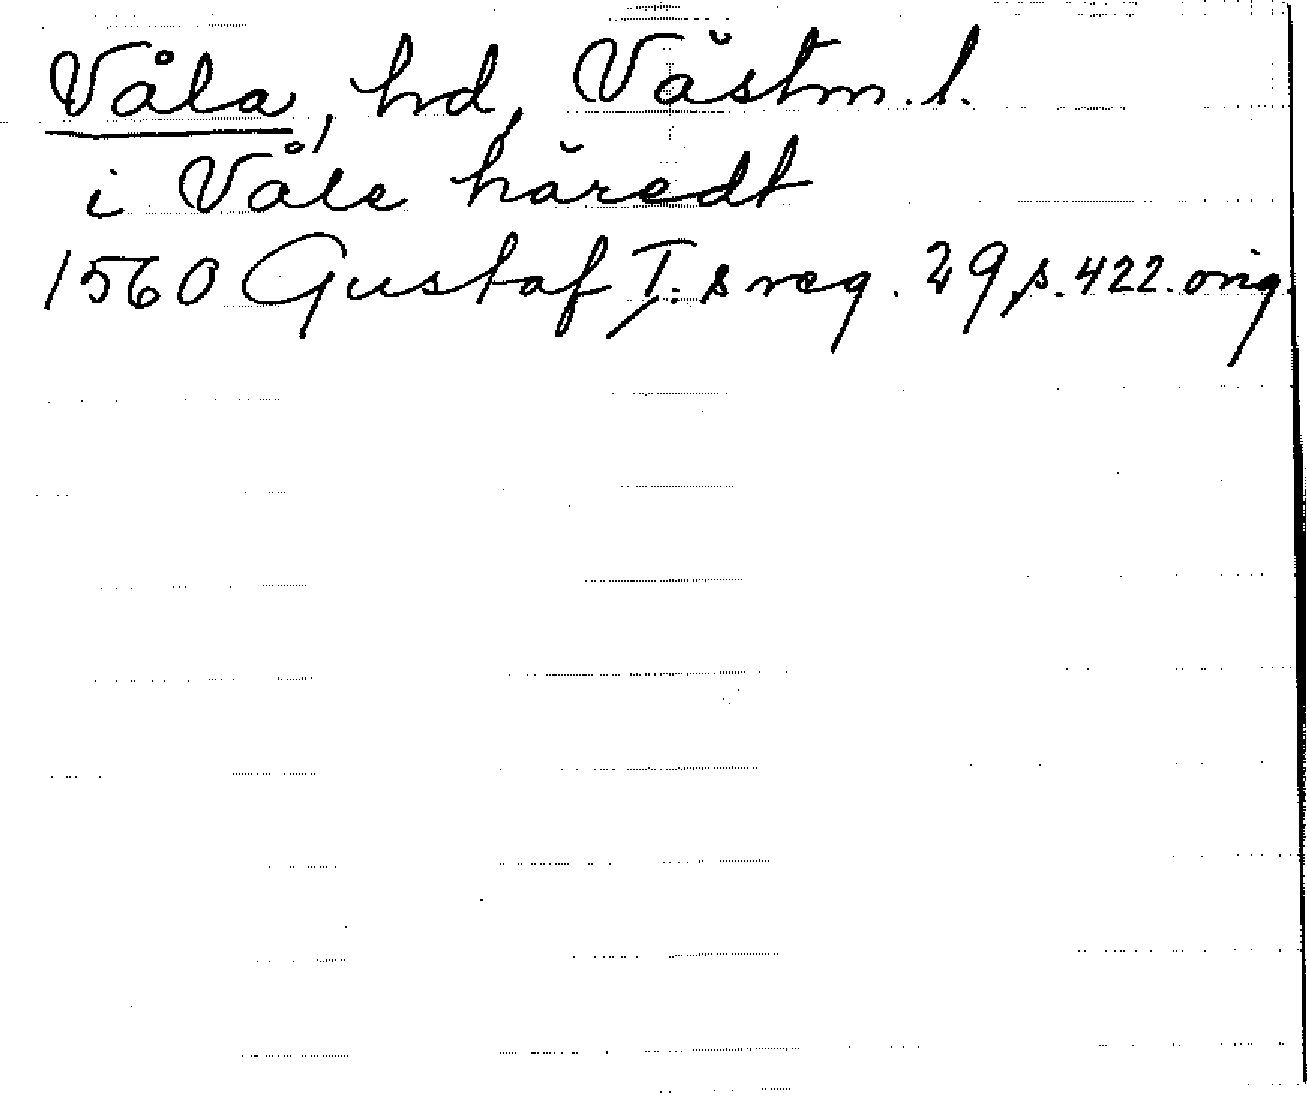 Våla, hd, Västm. l.
i Våle häredt
1560 Gustaf I:s reg. 29, s. 422. orig.